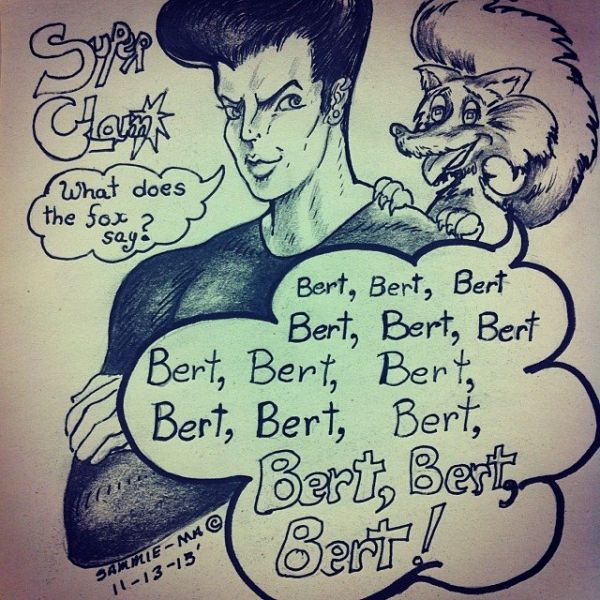 Super
Glam
What does
the fox
say?
Bert, Bert, Bert
Bert, Bert, Bert
Bert, Bert, Bert,
Bert, Bert, Bert,
Bert, Bert,
Bert!
SAMMIE-MA ©
11-13-13'